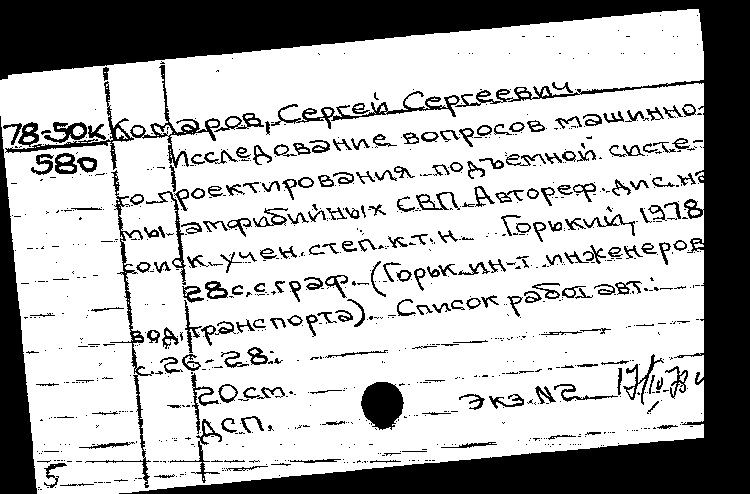 78-50к Комаров, Сергей Сергеевич.
580 Исследование вопросов машинно-
го проектирования подъемной систе-
мы амфибийных СВП. Автореф. дис. на
соиск. учен. степ. к.т.н. Горький, 1978
28с. с граф. (Горьк. ин-т инженеров
вод. транспорта). Список работ авт.:
с. 26-28.
20 см.
Экз. N2 17/IV-78
ДСП.
5